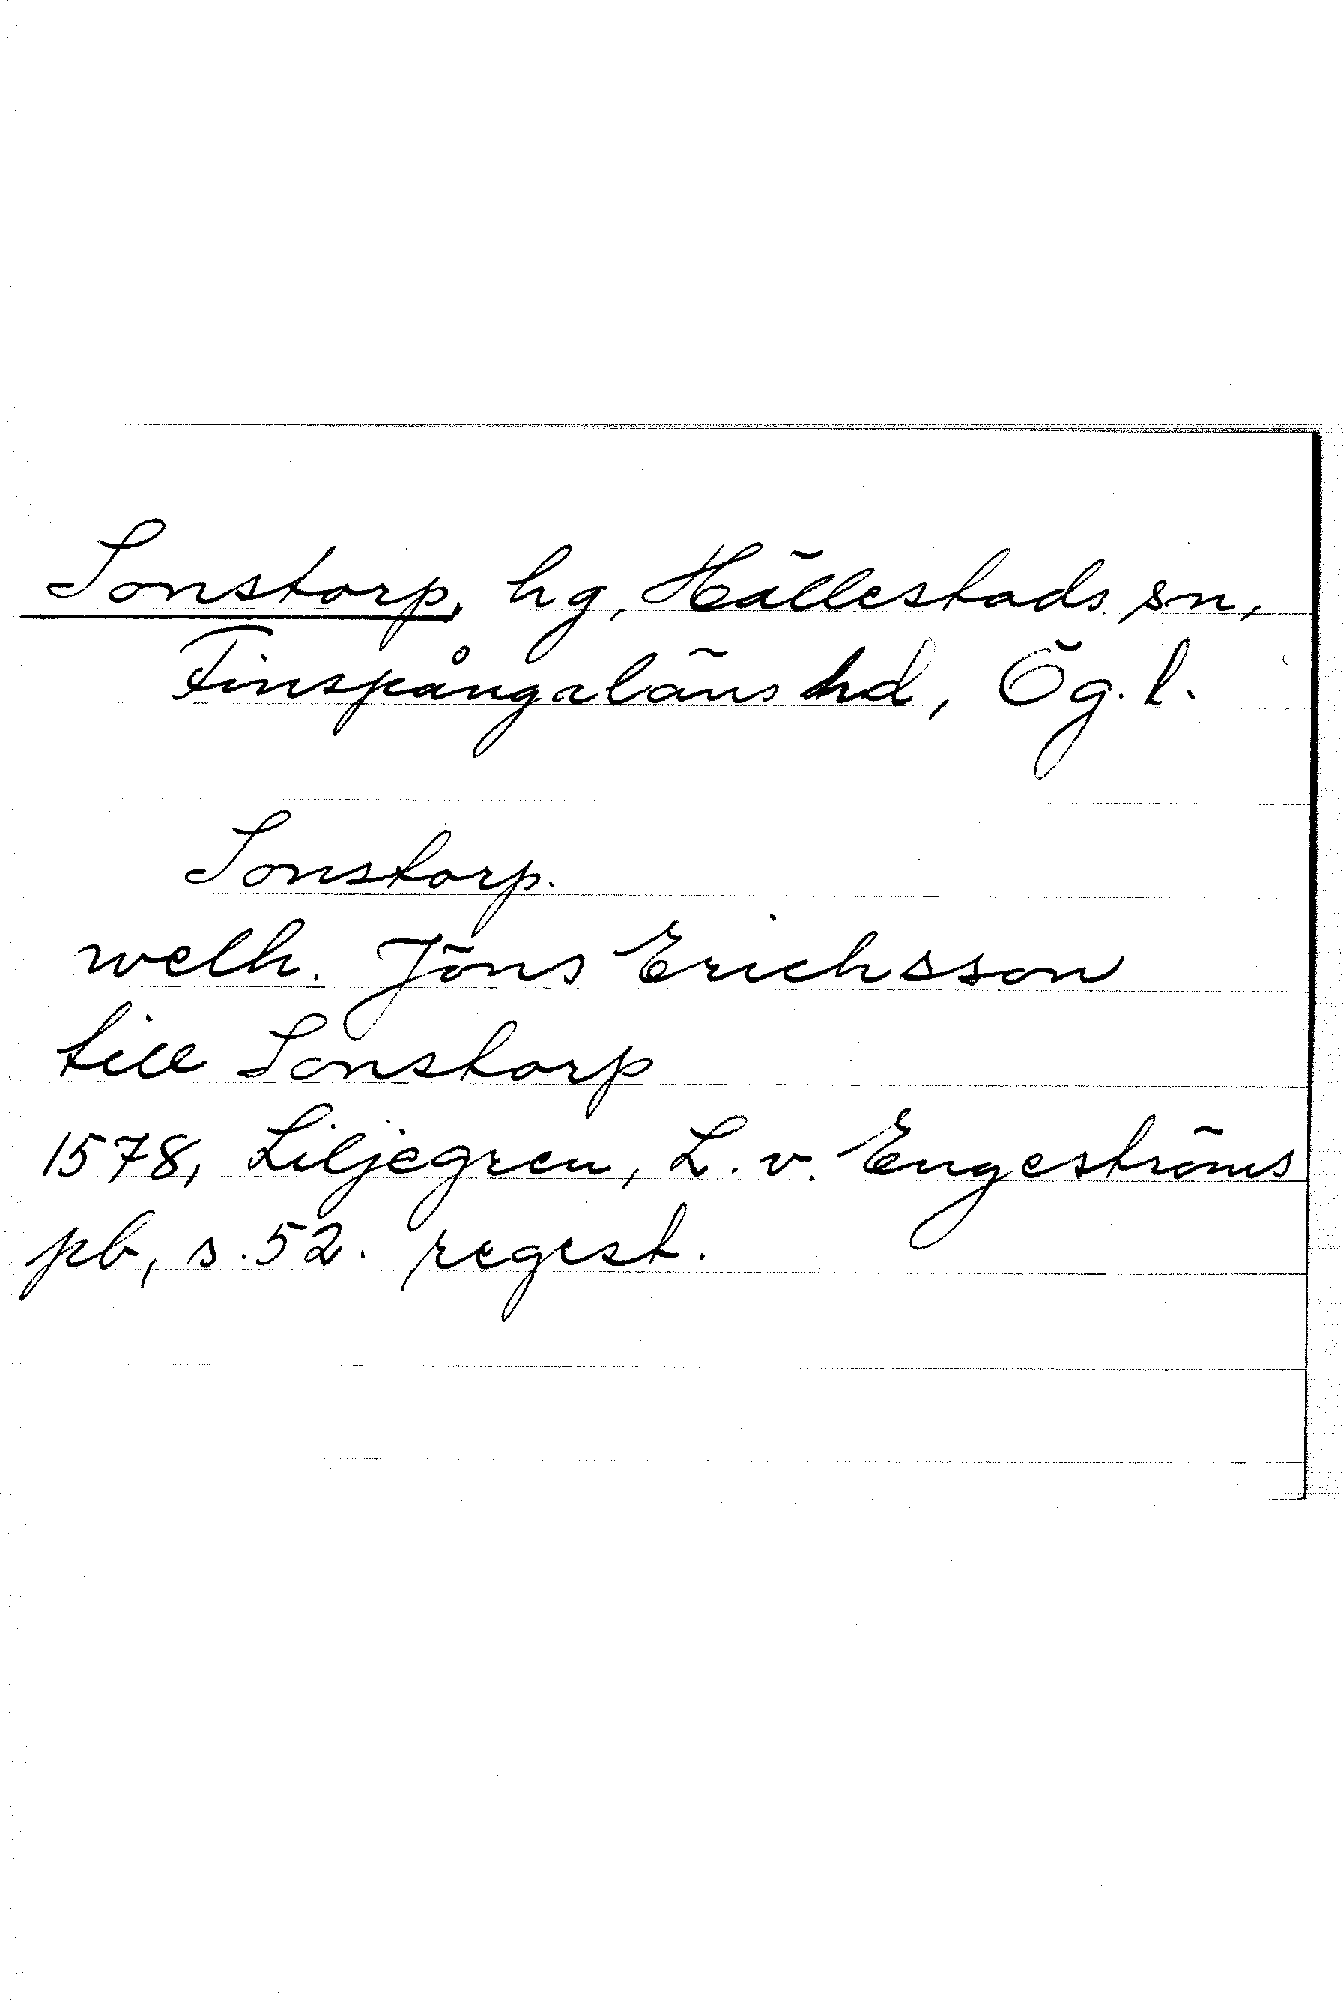 Sonstorp, hg, Hällestads sn,
Finspångaläns hd, Ög. l.
Sonstorp.
welh. Jöns Erichsson
till Sonstorp
1578, Liljegren, L. v. Engeströms
pb, s. 52. regest.